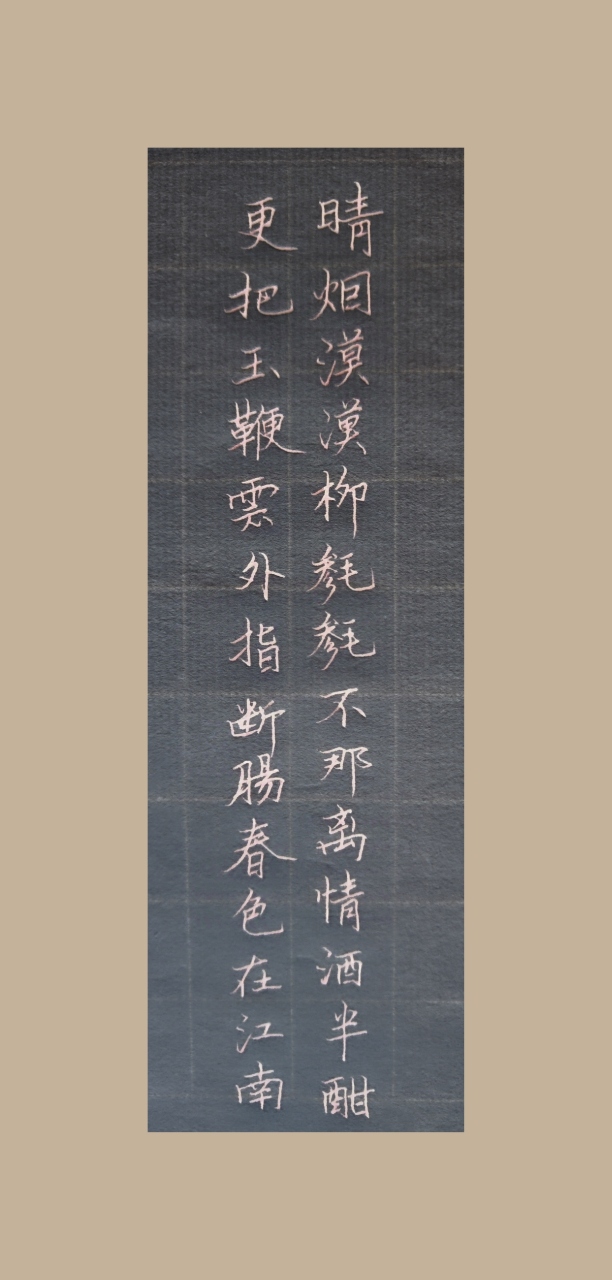 晴烟漠漠柳毿毿不那离情酒半酣
更把玉鞭雲外指断腸春色在江南